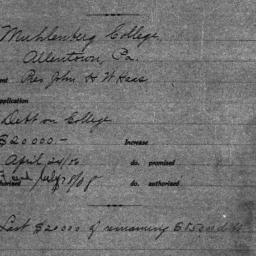 Muhlenberg College,
Allentown, Pa.
ent Pres John H W Haas
pplication
Debt on College
$20000.- Increase
April 24/06 do. promised
Paid July 28/08 do. authorized
Last $20000 of remaining